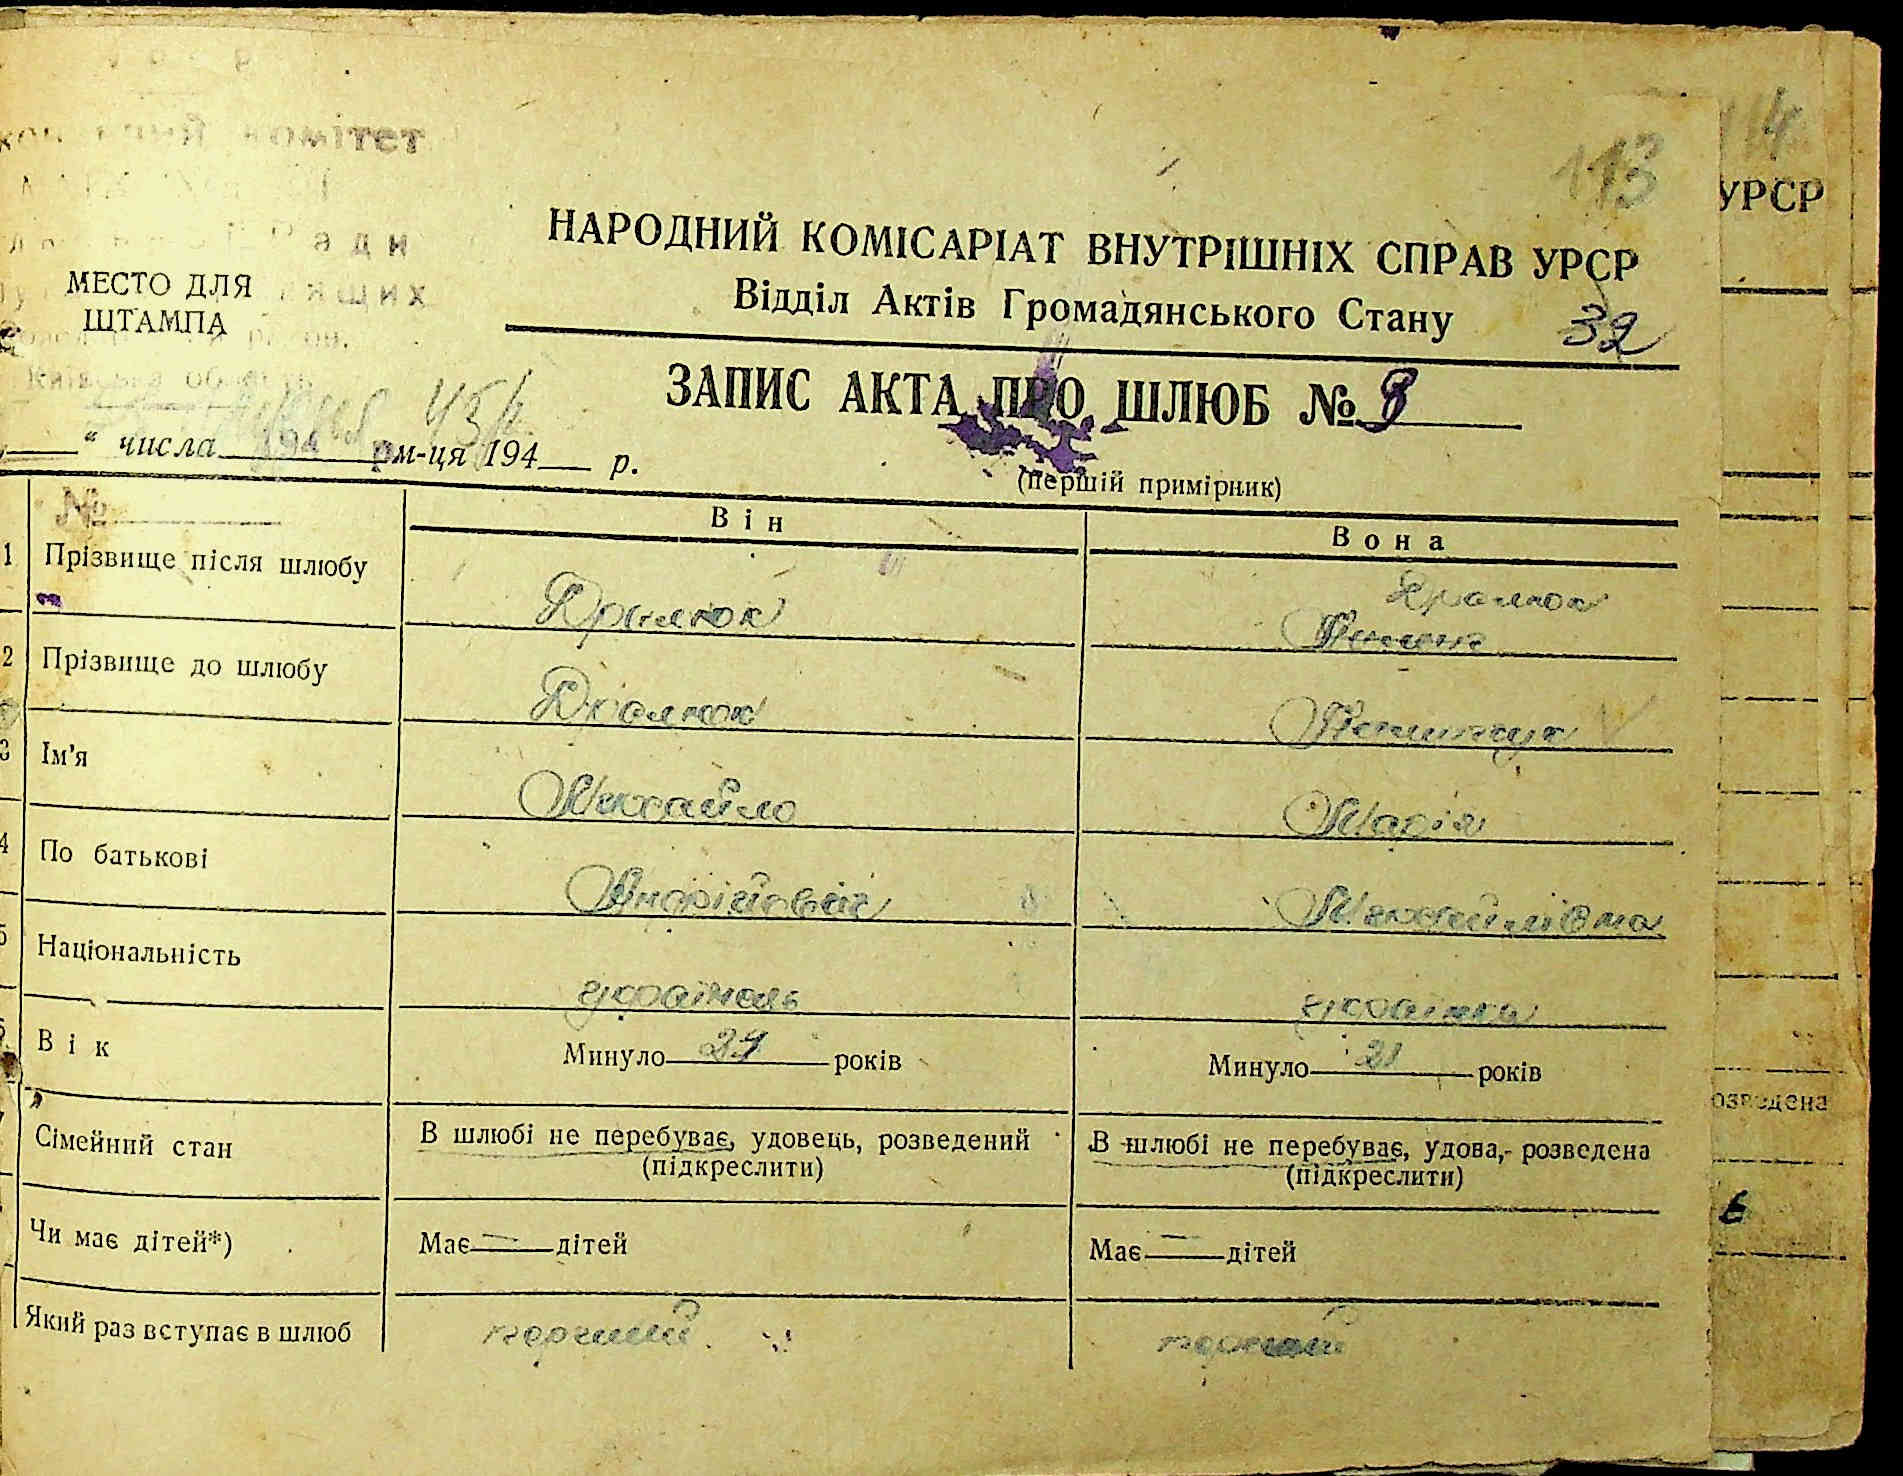 комітет
Ради
трудящих
МЕСТО ДЛЯ
ШТАМПА
Київська область
113
НАРОДНИЙ КОМІСАРІАТ ВНУТРІШНІХ СПРАВ УРСР
Відділ Актів Громадянського Стану
32
ЗАПИС АКТА ПРО ШЛЮБ №
“ числа м-ця 194 р.
(першій примірник)
№
Він
Вона
1 Прізвище після шлюбу
Дралюк
2 Прізвище до шлюбу Дралюк
3 Ім'я Михайло Марія
4 По батькові Андрійович Михайлівна
5 Національність українець українка
Вік Минуло років Минуло 21 років
Сімейний стан В шлюбі не перебуває, удовець, розведений В шлюбі не перебуває, удова, розведена
(підкреслити) (підкреслити)
Чи має дітей*) Має — дітей Має — дітей
Який раз вступає в шлюб перший перший
14
УРСР
озведена